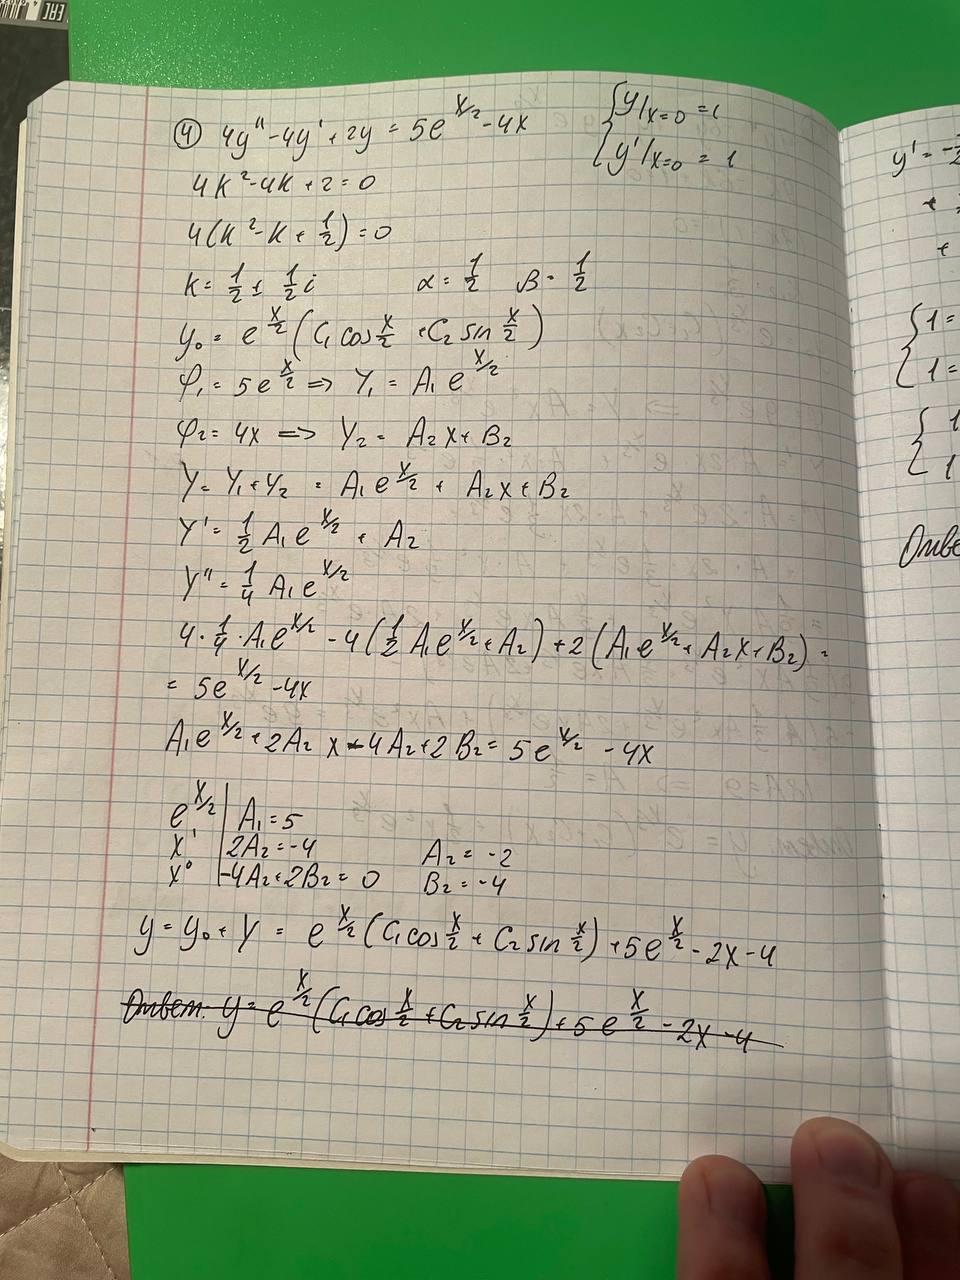 ④ 4y'' - 4y' + 2y = 5e^{x/2} - 4x { y|x=0 = 1
y'|x=0 = 1
4k² - 4k + 2 = 0
4(k² - k + 1/2) = 0
k = 1/2 ± 1/2 i α = 1/2 β = 1/2
y₀ = e^{x/2} (C₁ cos x/2 + C₂ sin x/2)
φ₁ = 5e^{x/2} => Y₁ = A₁ e^{x/2}
φ₂ = 4x => Y₂ = A₂x + B₂
Y = Y₁ + Y₂ = A₁e^{x/2} + A₂x + B₂
Y' = 1/2 A₁e^{x/2} + A₂
Y'' = 1/4 A₁e^{x/2}
4 · 1/4 · A₁e^{x/2} - 4(1/2 A₁e^{x/2} + A₂) + 2(A₁e^{x/2} + A₂x + B₂) =
= 5e^{x/2} - 4x
A₁e^{x/2} + 2A₂x - 4A₂ + 2B₂ = 5e^{x/2} - 4x
e^{x/2} | A₁ = 5
x¹ | 2A₂ = -4 A₂ = -2
x⁰ | -4A₂ + 2B₂ = 0 B₂ = -4
y = y₀ + Y = e^{x/2} (C₁ cos x/2 + C₂ sin x/2) + 5e^{x/2} - 2x - 4
Ответ: y = e^{x/2} (C₁ cos x/2 + C₂ sin x/2) + 5e^{x/2} - 2x - 4
y' = -
+
+
{ 1 =
1 =
{ 1
1
Отве